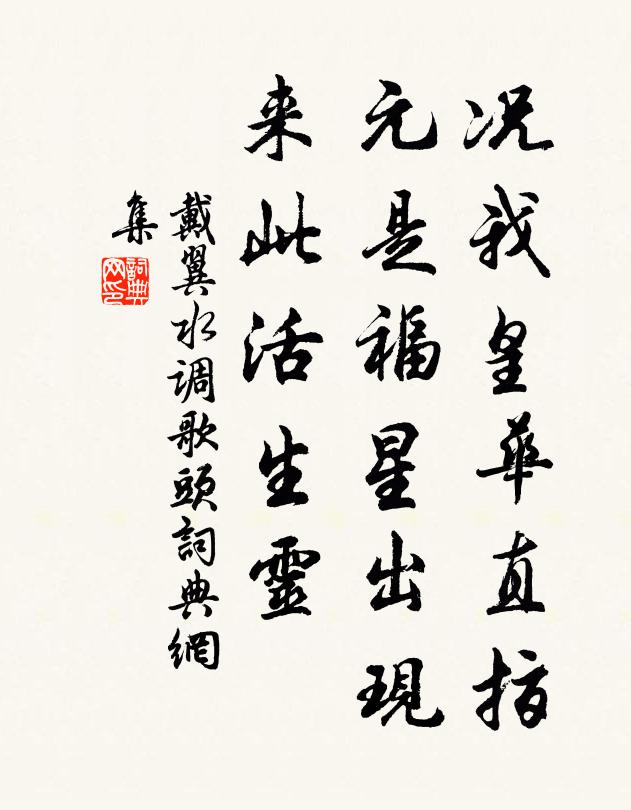 况我皇華直指
元是福星出現
来此活生靈
戴翼水调歌頭詞典網
集
詞典網印